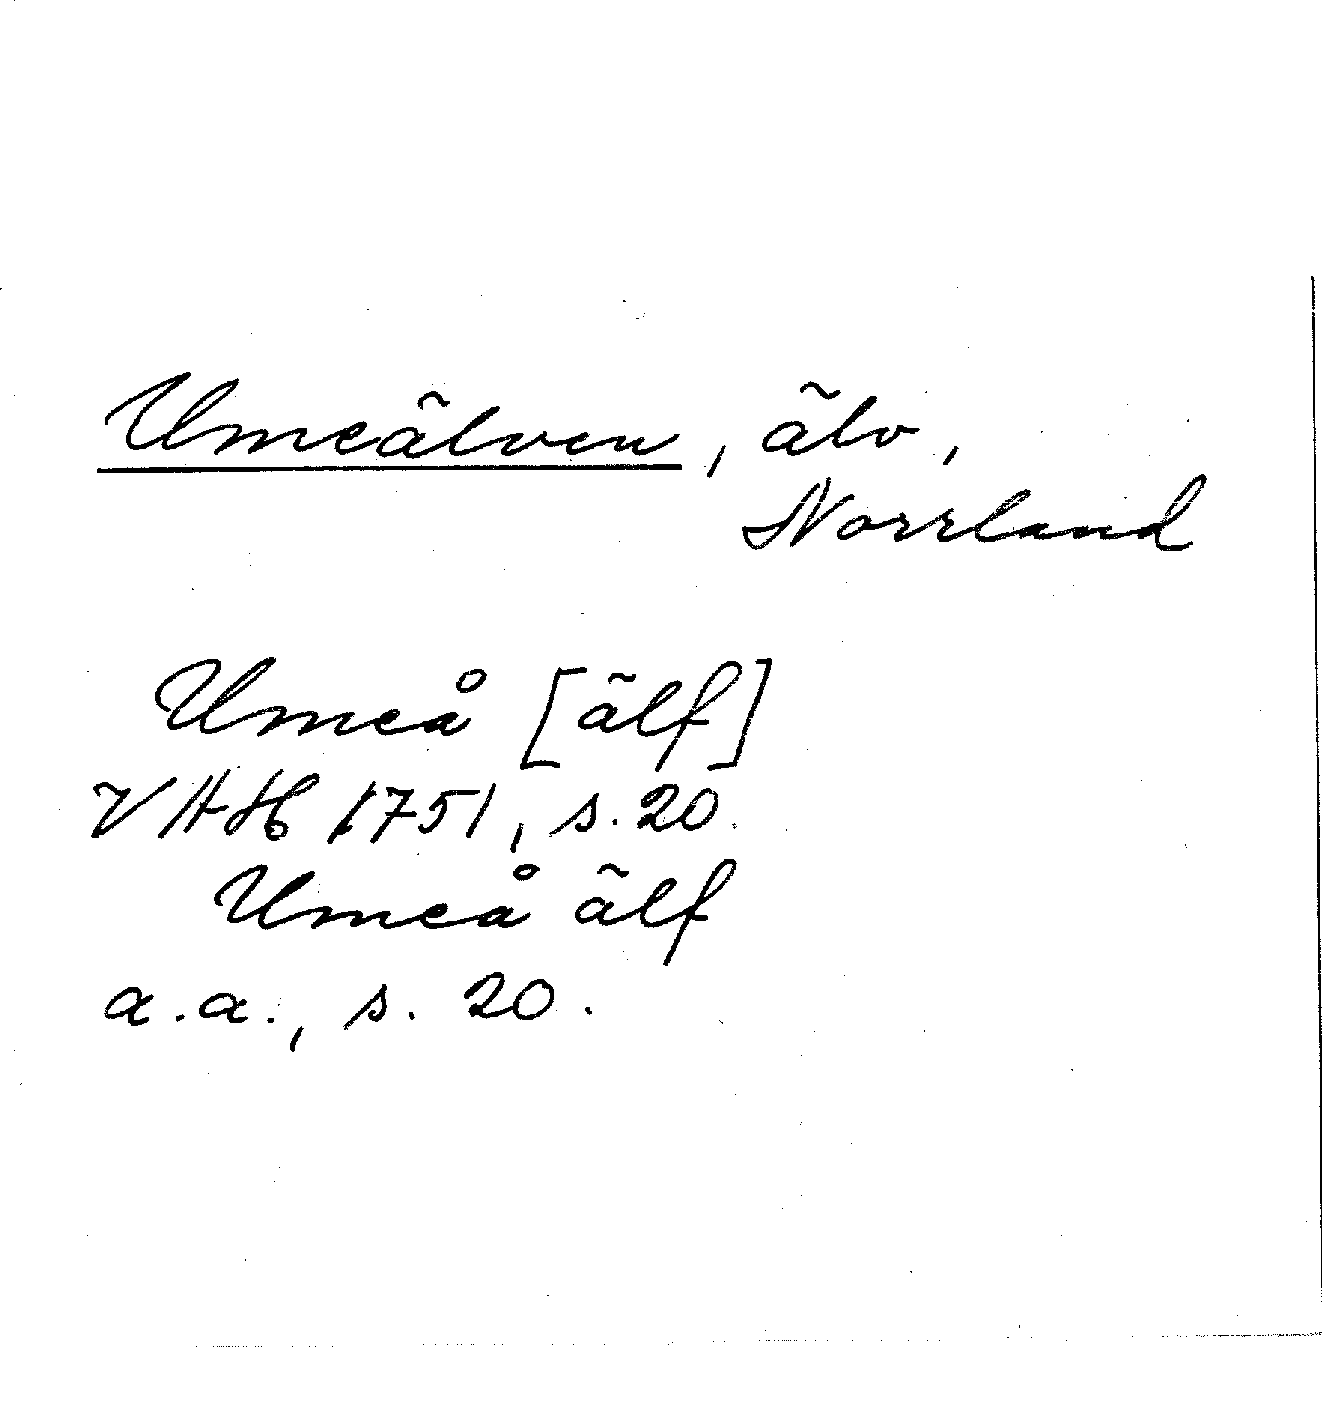 Umeälven, älv,
Norrland
Umeå [älf]
VAH 1751, s. 20.
Umeå älf
a.a., s. 20.